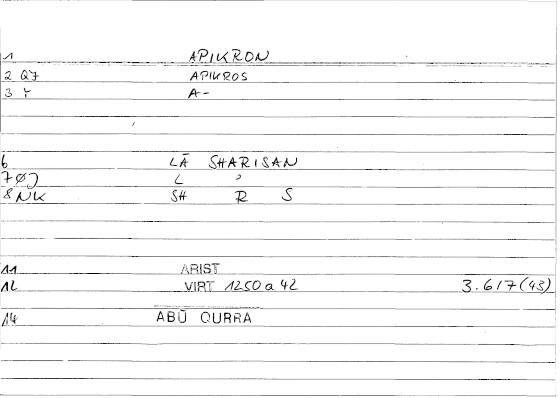 1 APIKRON
2 QJ APIKROS
3 A-
6 LĀ SHARISAN
7 ØJ L ʾ
8 NK SH R S
11 ARIST
12 VIRT 1250 a 42 3.617(43)
14 ABŪ QURRA